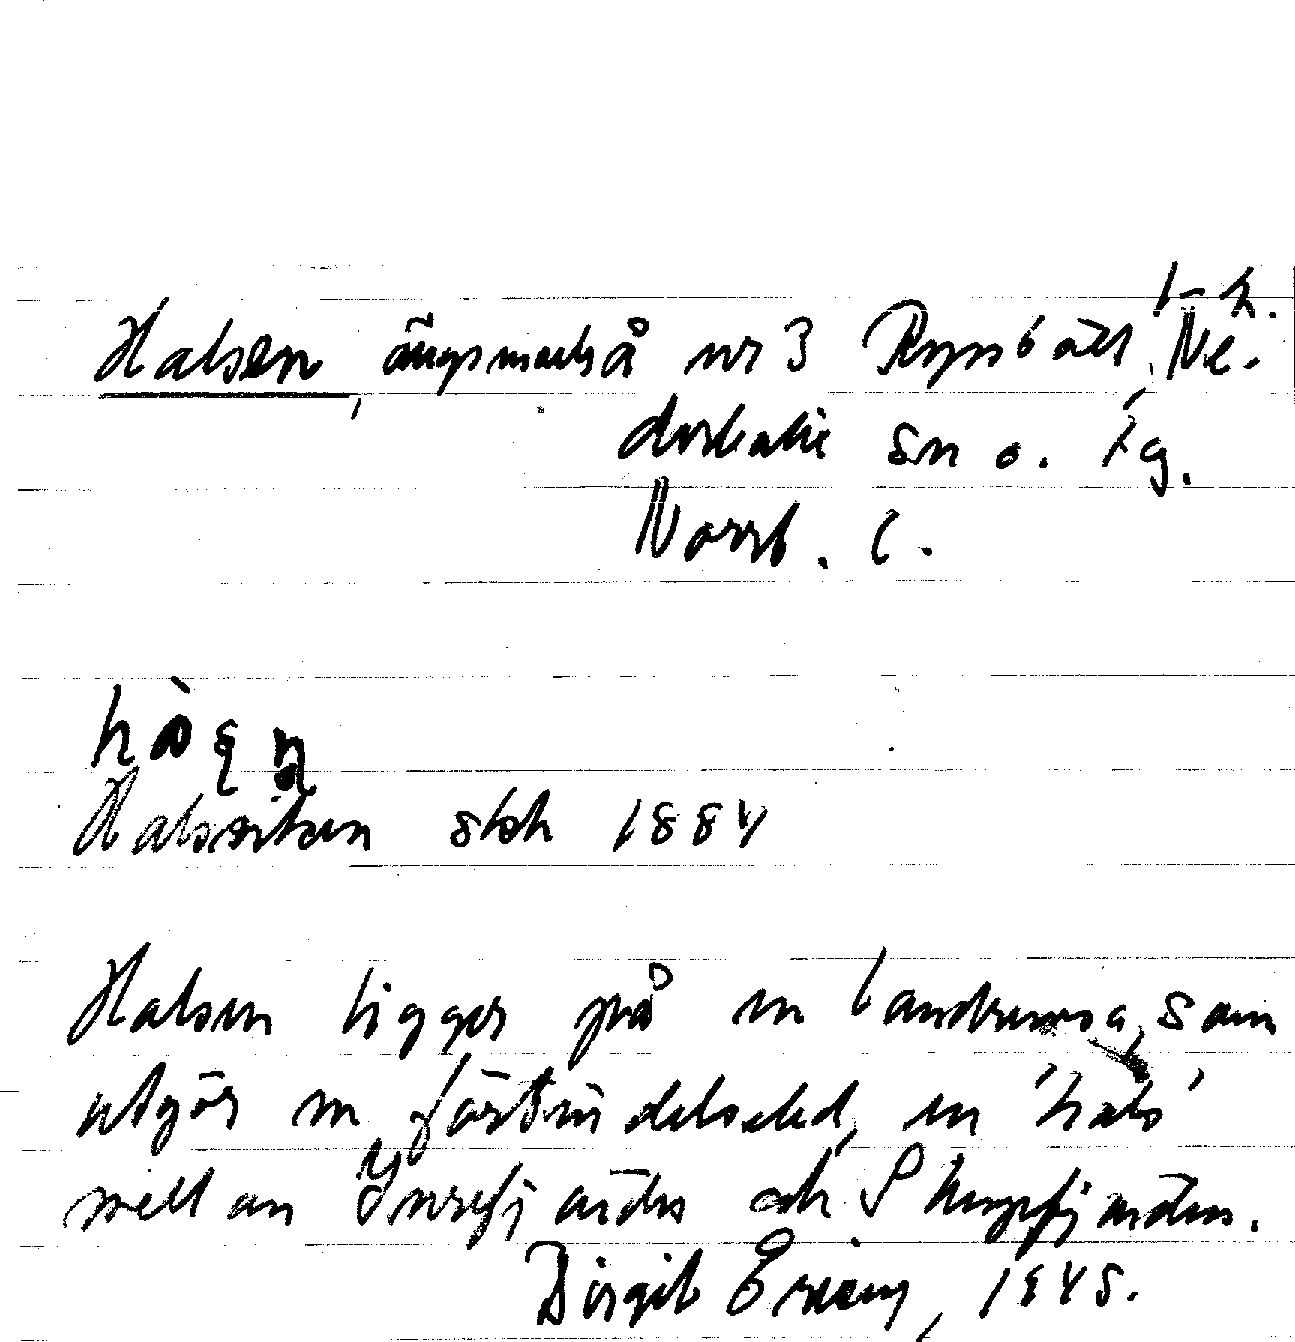 1-2.
Halsen, ängsmark å nr 3 Rynbäck, Ne-
derkalix sn o. tg.
Norrb. l.
Halsviken skh 1884
Halsen ligger på en landremsa, som
utgör en förbindelseled, en 'hals'
mellan Inrefjärden och Skupfjärden.
Birgit Ering, 1945.